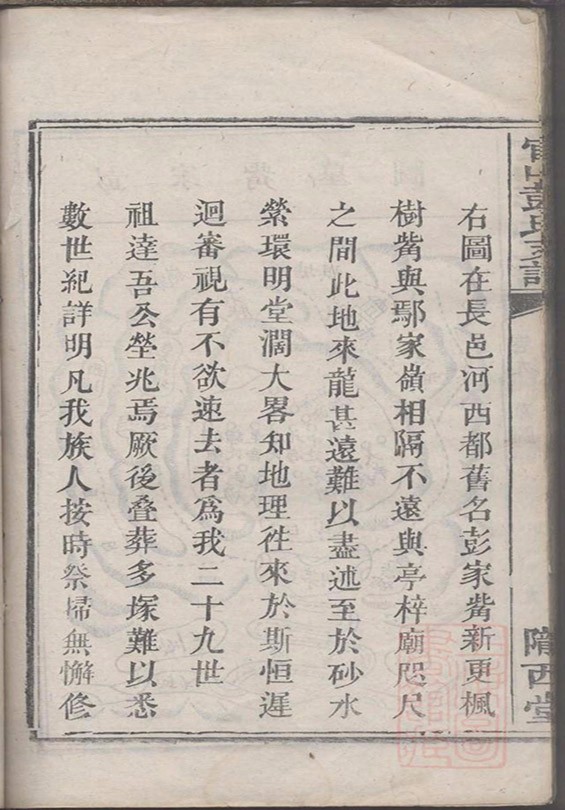 官山彭氏支譜
隴西堂
右圖在長邑河西都舊名彭家觜新更楓
樹觜與鄢家嶺相隔不遠與亭梓廟咫尺
之間此地來龍甚遠難以盡述至於砂水
縈環明堂濶大畧知地理徃來於斯恒遲
迴審視有不欲速去者爲我二十九世
祖達吾公塋兆焉厥後叠葬多塚難以悉
數世紀詳明凡我族人按時祭掃無懈修